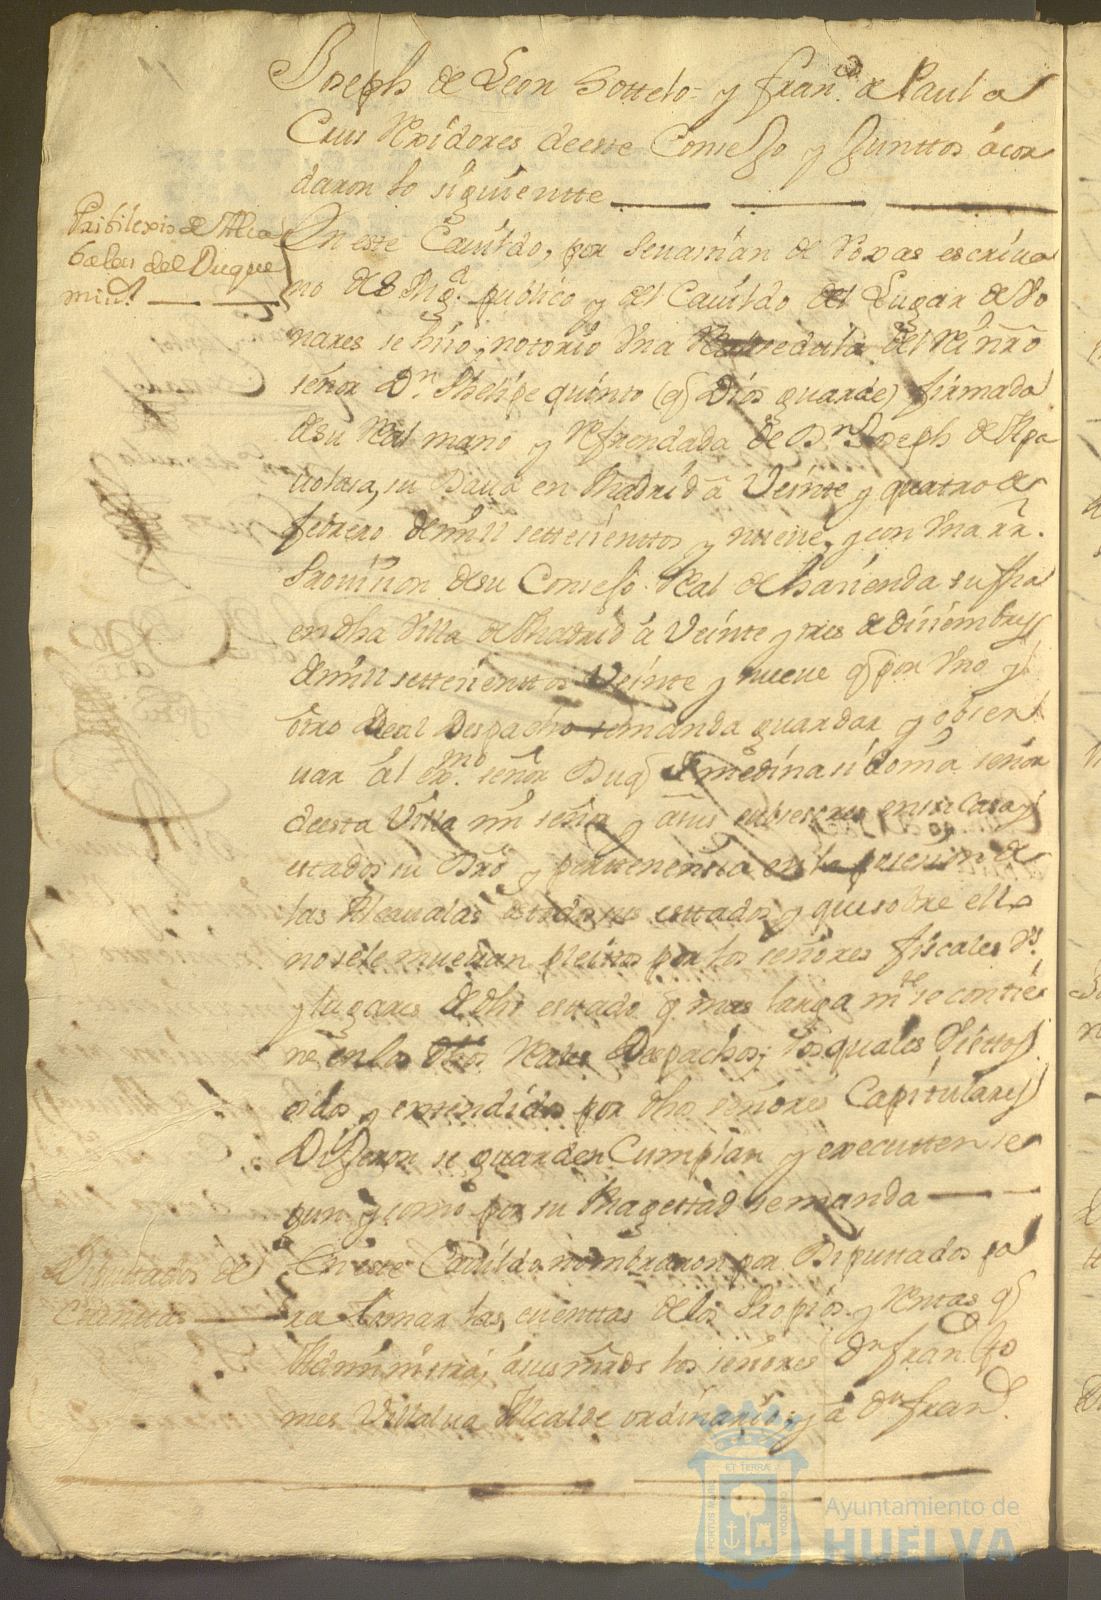 Joseph de Leon Sottelo= y fran.co de Paula
Crus Rexidores deeste Consejo y Junttos acor
daron lo siguientte
Pribilexio de Alca
balas del Duque
mi s.r
En este Cauildo, por Seuastian de Roxas escriua
no de S Mg.d publico y del Cauildo del Lugar de Bo
nares se hiso notorio Vna Real zedula del Rei nrõ
señor D.n Phelipe quinto (q̃ Dios guarde) firmada
desu Real mano y Refrendada de D.n Joseph de Apa
rolasa, su Datta en Madrid â Veinte y quatro de
febrero demill settesienttos y nueue, y con Vna rr.
Prouision desu Consejo Real de hasienda su fha
en dha Villa de Madrid â Veinte y tres de disiembre
demill settesienttos Veinte y nueue q̃ por Vno y
otro Real Despacho semanda guardar y obser
uar al ex.mo señor Duq̃ de medina sidonia señor
deesta Villa mi señor y asus subsesores en su Casa y
estados su Drõ y perttenensia en la posesion de
las Alcaualas de todos sus esttados y que sobre ello
no se le mueuan pleittos por los señores fiscales
y lugares de dho estado q̃ mas larga m.te se contie
ne en los dhos Reales Despachos; los quales Visttos
oidos y entendidos por dhos señores Capitulares
Dijeron se guarden Cumplan y executten se
gun y como por su Magesttad semanda
Diputtados de
Cuenttas
En este Cauildo nombraron por Diputtados pa
ra tomar las cuenttas de los Propios y Rentas q̃
Administra, asus mrds los señores D.n fran.co Go
mes Villalua Alcalde ordinario y â D.n fran.co
PORTUS MARIS
ET TERRÆ
CUSTODIA
Ayuntamiento de
HUELVA